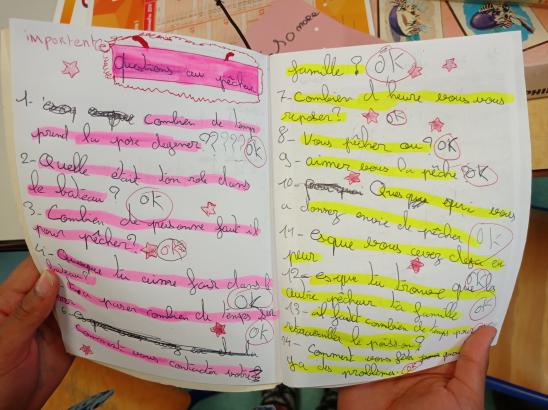 importente
Questions au pêcheur
1- Combien de temps
prend la pose dejener????? OK
2- Quelle était ton role dans
le bateau? OK
3- Combien de personne faut il
pour pêcher? OK
4- tu aime fair dans l
bateau? OK
passer combien de temps sur
OK
6-
Comment vous contacter votre
famille? OK
7- Combien d'heure vous vous
reposer? OK
8- Vous pêcher ou? OK
9- aimer vous la pêche? OK
10- Ques que qui vous
a donnez envie de pêcher OK
11- esque vous avez deja eu
peur OK
12- esque tu trouve que la
autre pêcheur ta famille OK
13- il faut combien de temps pour
le poisson? OK
14- Comment vous
ya des problèmes. OK